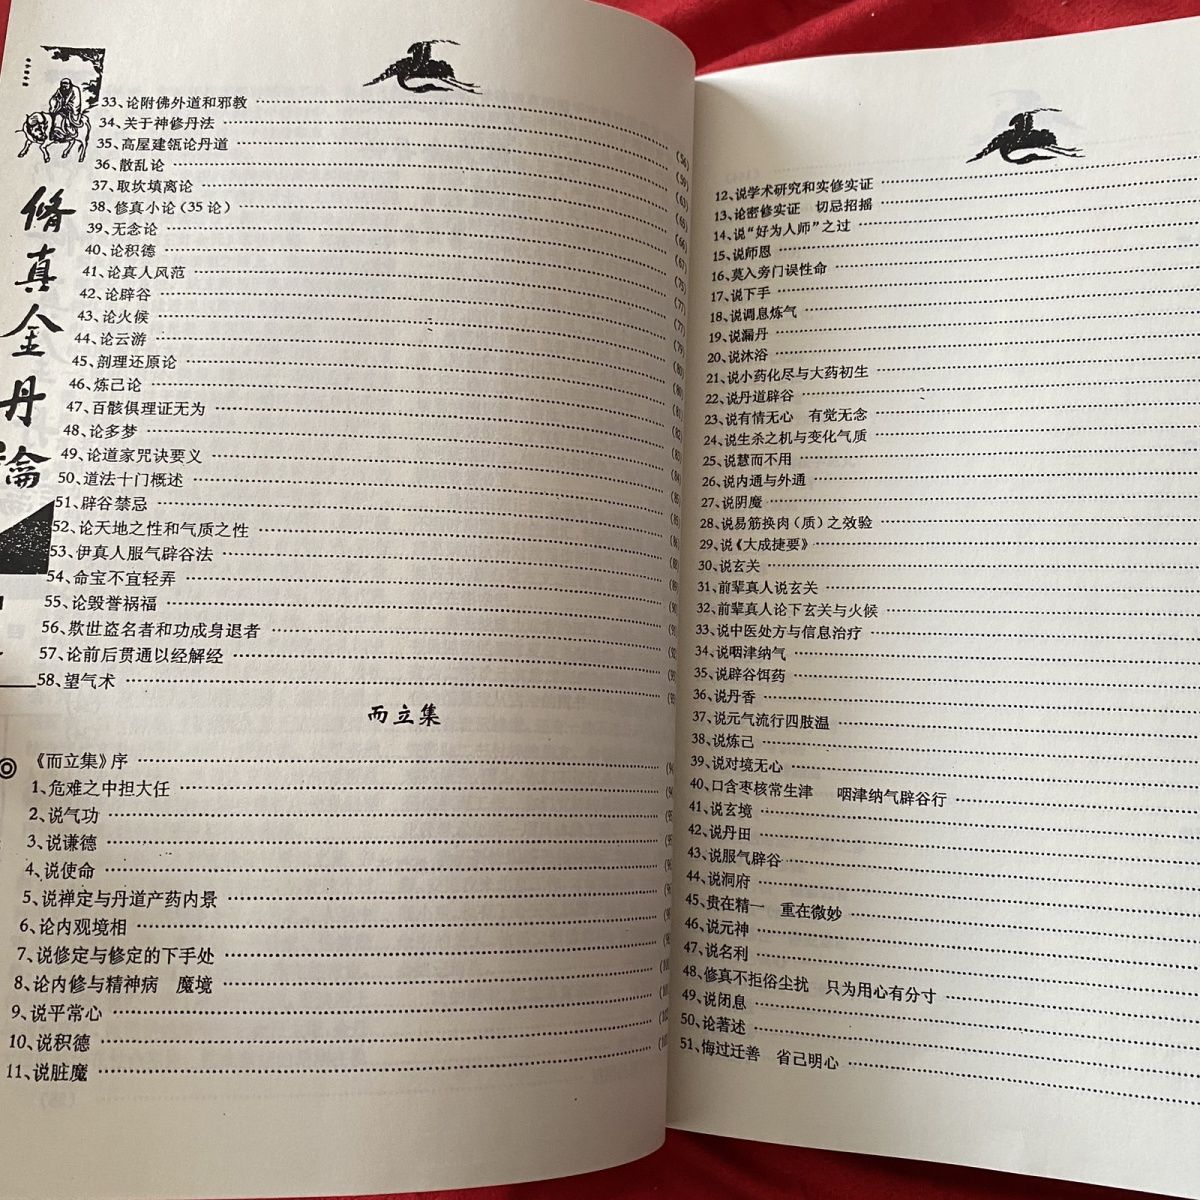 修真金丹論
33、论附佛外道和邪教
34、关于神修丹法 (56)
35、高屋建瓴论丹道 (59)
36、散乱论 (63)
37、取坎填离论 (65)
38、修真小论(35论) (66)
39、无念论 (67)
40、论积德 (75)
41、论真人风范 (77)
42、论辟谷 (77)
43、论火候 (79)
44、论云游 (80)
45、剖理还原论 (80)
46、炼己论 (81)
47、百骸俱理证无为 (82)
48、论多梦 (83)
49、论道家咒诀要义 (84)
50、道法十门概述 (85)
51、辟谷禁忌 (85)
52、论天地之性和气质之性 (86)
53、伊真人服气辟谷法 (88)
54、命宝不宜轻弄 (89)
55、论毁誉祸福 (90)
56、欺世盗名者和功成身退者
57、论前后贯通以经解经
58、望气术
而立集
《而立集》序
1、危难之中担大任
2、说气功
3、说谦德
4、说使命
5、说禅定与丹道产药内景
6、论内观境相
7、说修定与修定的下手处
8、论内修与精神病 魔境
9、说平常心
10、说积德
11、说脏魔
12、说学术研究和实修实证
13、论密修实证 切忌招摇
14、说“好为人师”之过
15、说师恩
16、莫入旁门误性命
17、说下手
18、说调息炼气
19、说漏丹
20、说沐浴
21、说小药化尽与大药初生
22、说丹道辟谷
23、说有情无心 有觉无念
24、说生杀之机与变化气质
25、说慧而不用
26、说内通与外通
27、说阴魔
28、说易筋换肉(质)之效验
29、说《大成捷要》
30、说玄关
31、前辈真人说玄关
32、前辈真人论下玄关与火候
33、说中医处方与信息治疗
34、说咽津纳气
35、说辟谷饵药
36、说丹香
37、说元气流行四肢温
38、说炼己
39、说对境无心
40、口含枣核常生津 咽津纳气辟谷行
41、说玄境
42、说丹田
43、说服气辟谷
44、说洞府
45、贵在精一 重在微妙
46、说元神
47、说名利
48、修真不拒俗尘扰 只为用心有分寸
49、说闭息
50、论著述
51、悔过迁善 省己明心